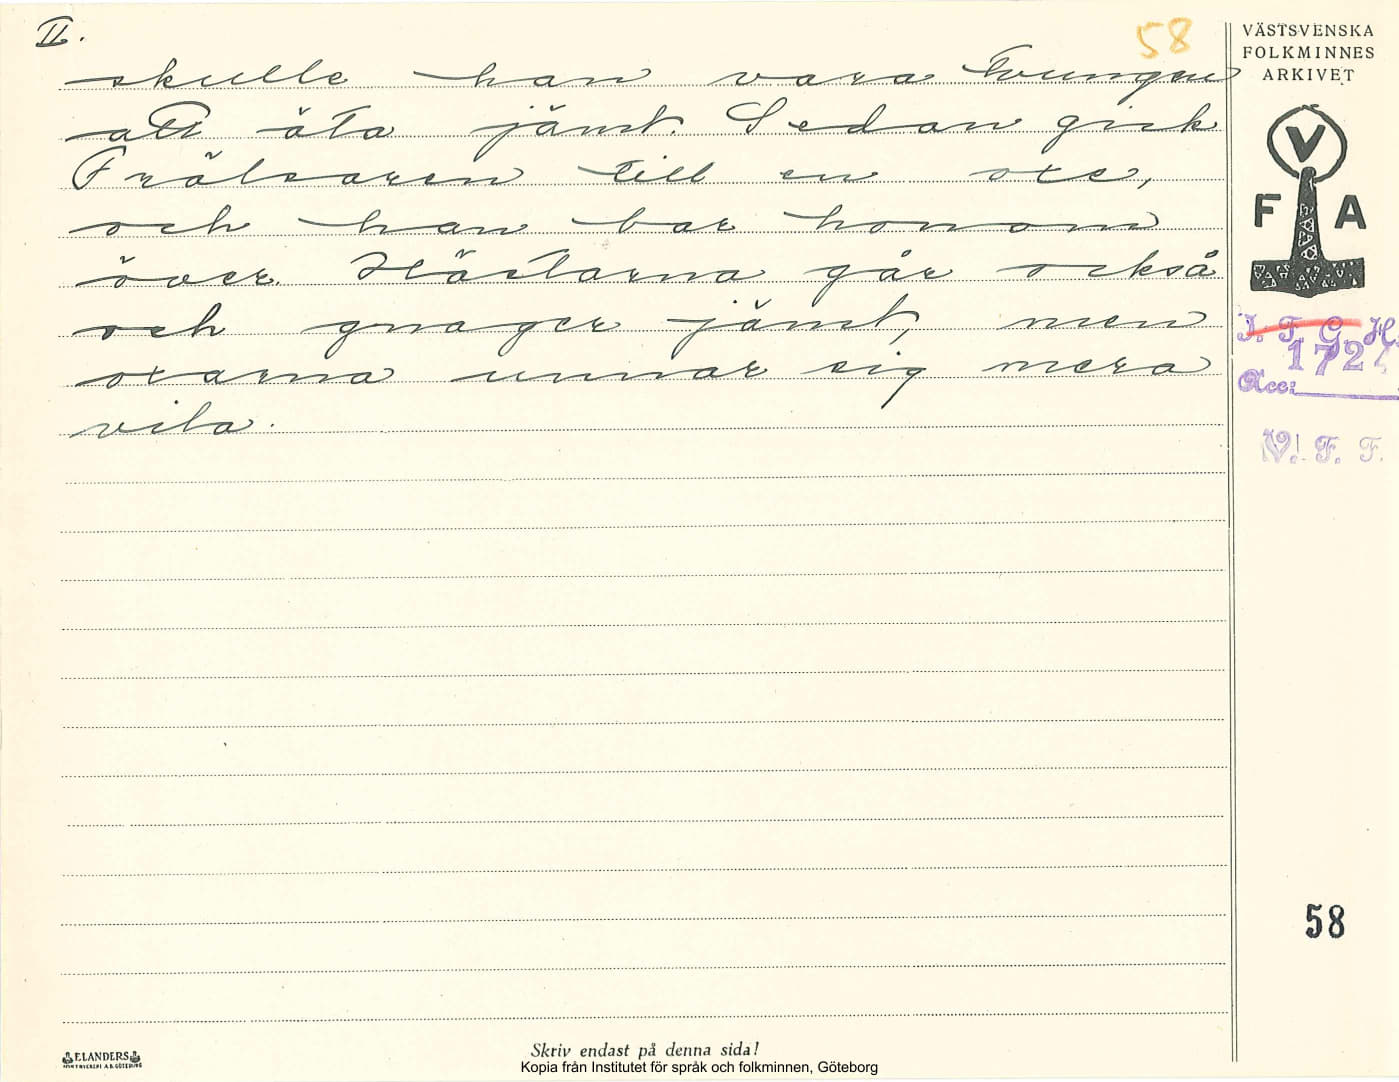 II.
58
skulle han vara tvungen
att äta jämt. Sedan gick
Frälsaren till en oxe,
och han bar honom
över. Hästarna går också
och gnager jämt, men
oxarna unnar sig mera
vila.
VÄSTSVENSKA
FOLKMINNES
ARKIVET
V
F A
I. F. G. H.
172
Acc:
V. F. F.
58
ELANDERS
Skriv endast på denna sida!
Kopia från Institutet för språk och folkminnen, Göteborg